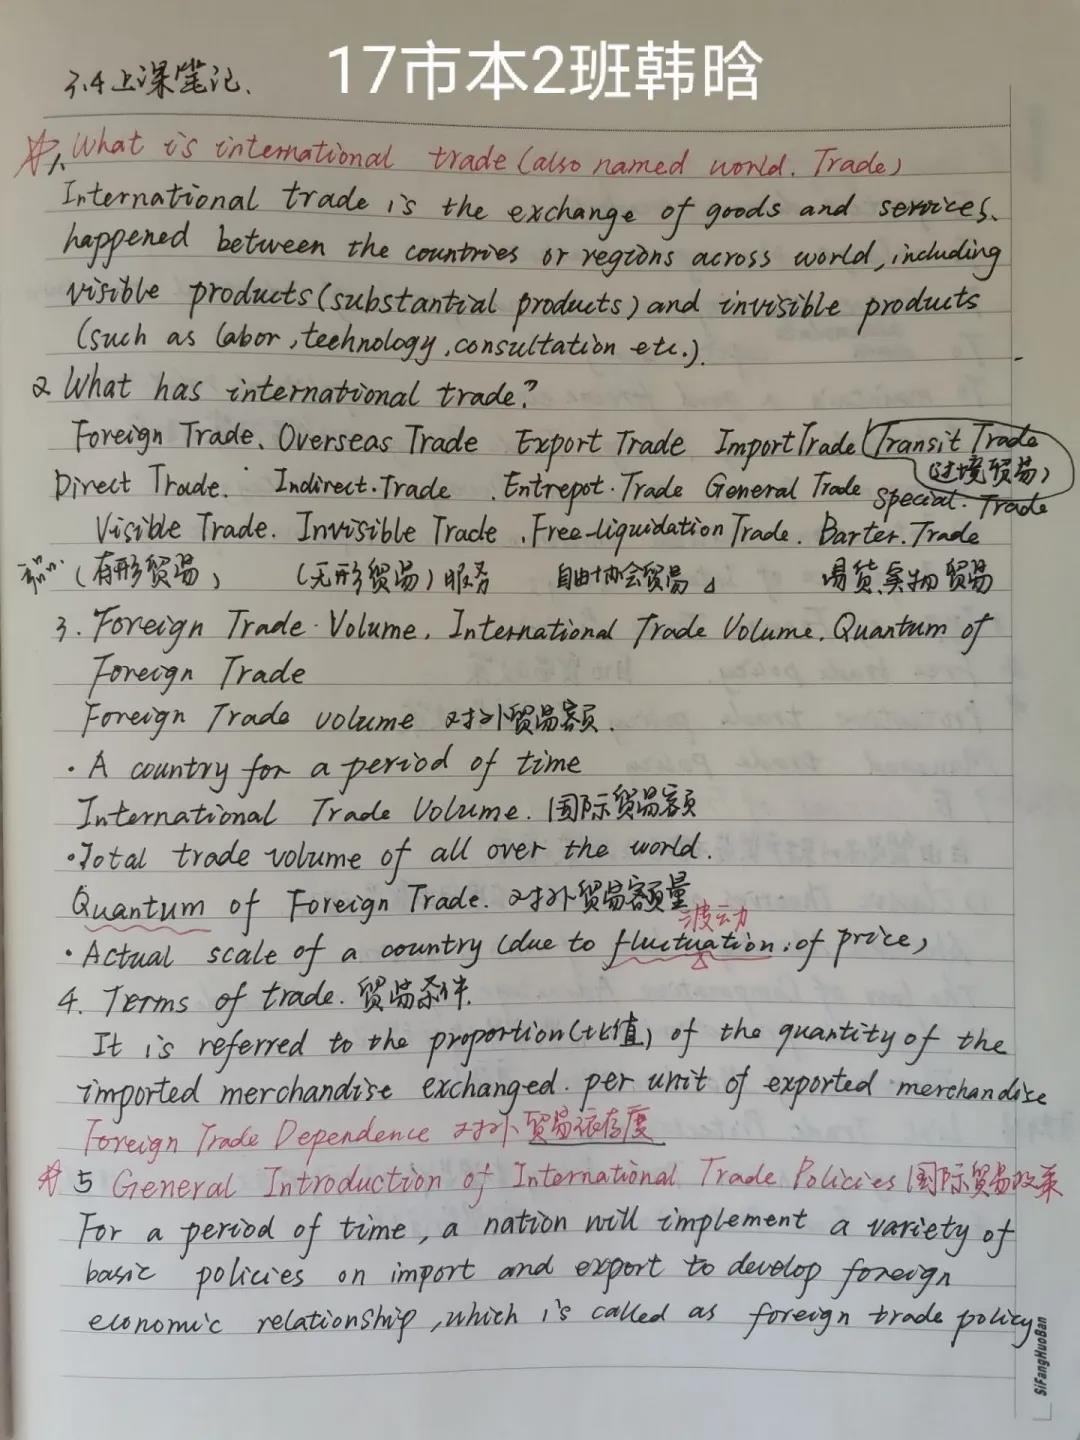 17市本2班韩晗
3.4上课笔记.
1. What is international trade (also named world. Trade)
International trade is the exchange of goods and services.
happened between the countries or regions across world, including
visible products (substantial products) and invisible products
(such as labor, technology, consultation etc.).
2 What has international trade?
Foreign Trade. Overseas Trade Export Trade Import Trade Transit Trade
(过境贸易)
Direct Trade. Indirect. Trade . Entrepot. Trade General Trade Special. Trade
Visible Trade. Invisible Trade . Free-liquidation Trade. Barter. Trade
(有形贸易) (无形贸易) 服务 自由协会贸易 易货实物贸易
3. Foreign Trade. Volume. International Trade Volume. Quantum of
Foreign Trade
Foreign Trade volume 对外贸易额.
· A country for a period of time
International Trade Volume. 国际贸易额
· Total trade volume of all over the world.
Quantum of Foreign Trade. 对外贸易额量
波动
· Actual scale of a country (due to fluctuation. of price)
4. Terms of trade. 贸易条件.
It is referred to the proportion (比值) of the quantity of the
imported merchandise exchanged. per unit of exported merchandise
Foreign Trade Dependence 对外贸易依存度
5 General Introduction of International Trade Policies 国际贸易政策
For a period of time, a nation will implement a variety of
basic policies on import and export to develop foreign
economic relationship, which is called as foreign trade policy
SiFangHuoBan